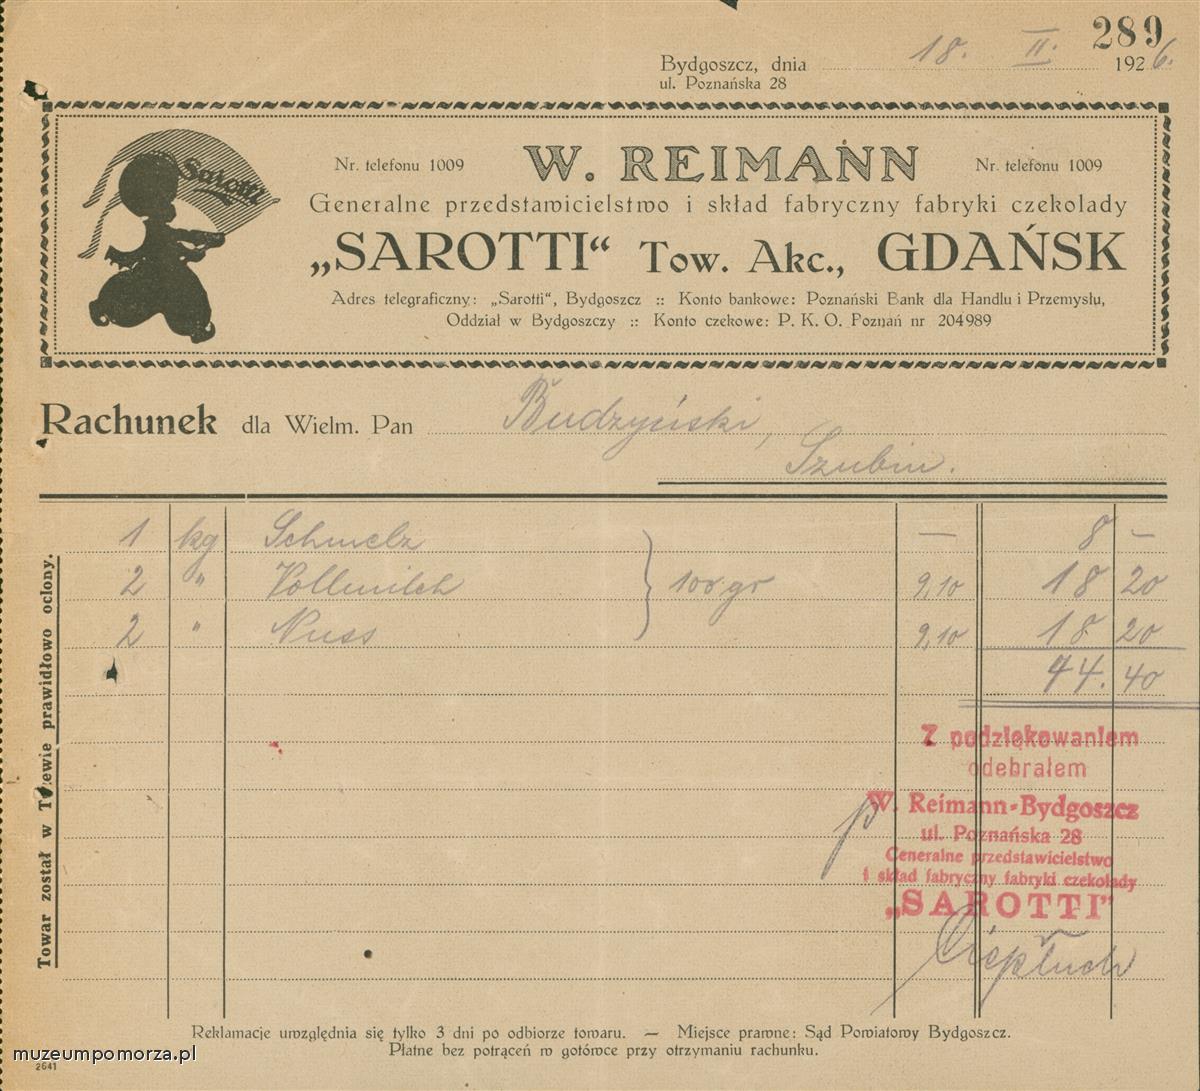 289
Bydgoszcz, dnia 18. II. 1926.
ul. Poznańska 28
Sarotti
Nr. telefonu 1009 W. REIMANN Nr. telefonu 1009
Generalne przedstawicielstwo i skład fabryczny fabryki czekolady
„SAROTTI“ Tow. Akc., GDAŃSK
Adres telegraficzny: „Sarotti“, Bydgoszcz :: Konto bankowe: Poznański Bank dla Handlu i Przemysłu,
Oddział w Bydgoszczy :: Konto czekowe: P. K. O. Poznań nr 204989
Rachunek dla Wielm. Pan Budzyński,
Szubin.
1 kg Schmelz — 8 —
2 " Vollmilch } 100 gr 9,10 18 20
2 " Nuss 9,10 18 20
44. 40
Towar został w Tczewie prawidłowo oclony.
Z podziękowaniem
odebrałem
p W. Reimann-Bydgoszcz
ul. Poznańska 28
Generalne przedstawicielstwo
i skład fabryczny fabryki czekolady
„SAROTTI”
Reklamacje uwzględnia się tylko 3 dni po odbiorze towaru. — Miejsce prawne: Sąd Powiatowy Bydgoszcz.
Płatne bez potrąceń w gotówce przy otrzymaniu rachunku.
muzeumpomorza.pl
2641